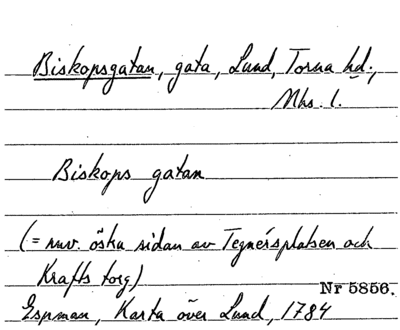 Biskopsgatan, gata, Lund, Torna hd.,
Mhs. l.
Biskops gatan
(= nuv. östra sidan av Tegnérsplatsen och
Krafts torg)
Nr 5856.
Espman, Karta över Lund, 1784